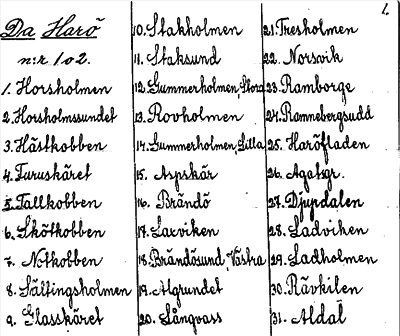 1.
Da Harö
n:r 1 o 2.
1. Horsholmen
2. Horsholmssundet
3. Hästkobben
4. Furuskäret
5. Tallkobben
6. Skötkobben
7. Notkobben
8. Sältingsholmen
9. Glasskäret
10. Stakholmen
11. Staksund
12. Gummerholmen, Stora
13. Rovholmen
14. Gummerholmen, Lilla
15. Aspskär
16. Brändö
17. Laxviken
18. Brändösund, Västra
19. Algrundet
20. Långvass
21. Tresholmen
22. Norsvik
23. Ramborge
24. Ramnebergsudd
25. Haröfladen
26. Agatsgr.
27. Djupdalen
28. Ladviken
29. Ladholmen
30. Rävkilen
31. Aldal